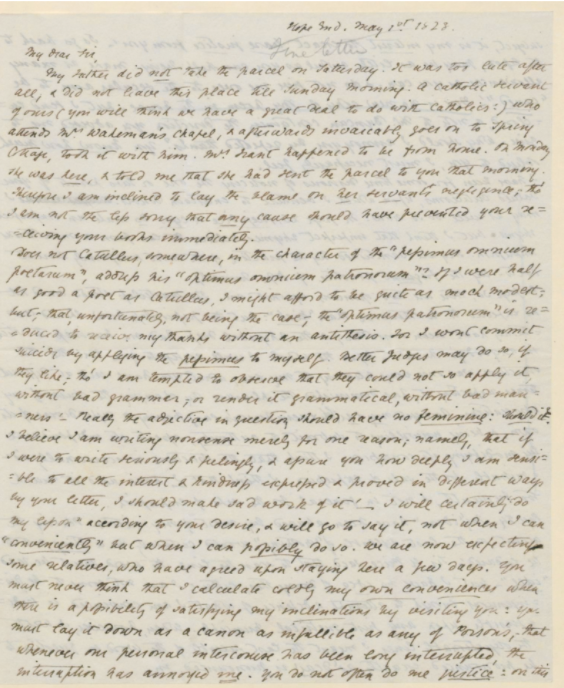 Hope End. May 1st 1828.
My dear Sir,
My Father did not take the parcel on Saturday. It was too late after
all, & did not leave this place till Sunday morning. A catholic servant
of ours (you will think we have a great deal to do with catholics:) who
attends Mr Wakeman's chapel, & afterwards invariably goes on to Spring
Cottage, took it with him. Mrs Grant happened to be from home. On Monday
she was here, & told me that she had sent the parcel to you that morning.
Therefore I am inclined to lay the blame on her servant's negligence; tho'
I am not the less sorry that any cause should have prevented your re=
=ceiving your books immediately.
Does not Catullus, somewhere, in the character of the "pessimus omnium
poetarum", address his "optimus omnium patronorum"? If I were half
as good a poet as Catullus, I might afford to be quite as much modest;
but, that, unfortunately, not being the case, the "optimus patronorum" is re=
=duced to receive my thanks without an antithesis. For I wont commit
suicide by applying the pessimus to myself. Better Judges may do so, if
they like; tho' I am tempted to observe that they could not so apply it
without bad grammar; or render it grammatical, without bad man=
=ners! Really the adjective in question should have no feminine:
I believe I am writing nonsense merely for one reason; namely, that if
I were to write seriously & feelingly, & assure you how deeply I am sensi=
=ble to all the interest & kindness expressed & proved in different ways
by your letter, I should make sad work of it! I will certainly "do
my lesson" according to your desire, & will go to say it, not when I can
"conveniently" but when I can possibly do so. We are now expecting
some relatives, who have agreed upon staying here a few days. You
must never think that I calculate coldly my own conveniences when
there is a possibility of satisfying my inclinations by visiting you: you
must lay it down as a canon as infallible as any of Porson's, that
whenever our personal intercourse has been long interrupted, the
interruption has annoyed me. You do not often do me justice: on this